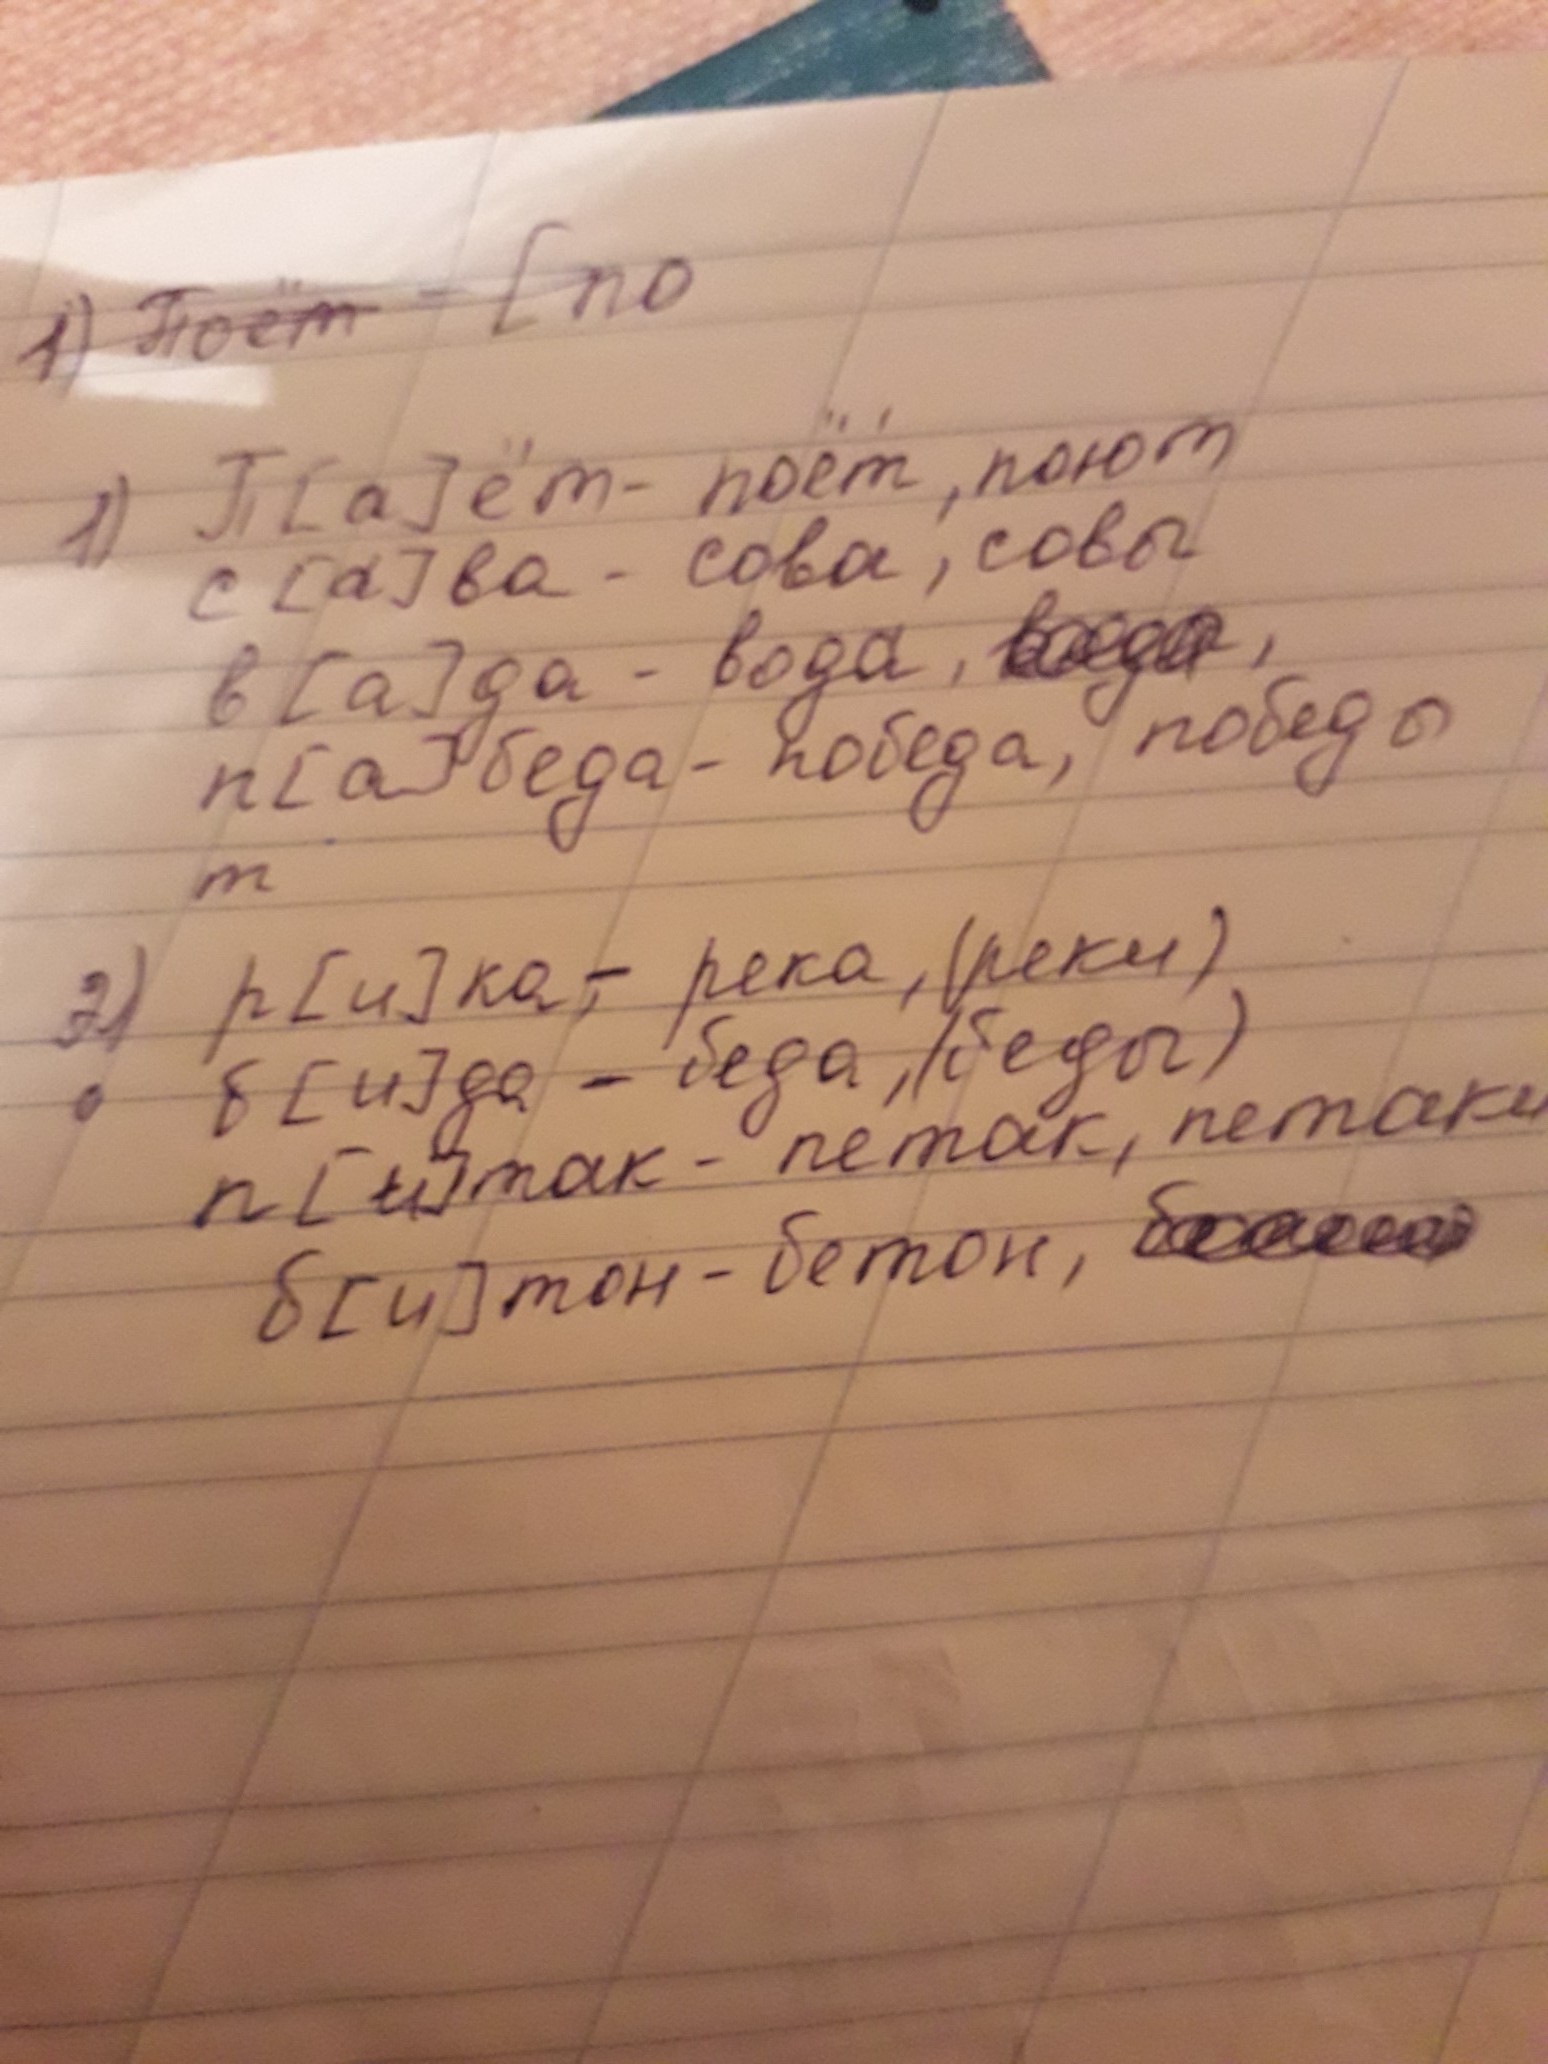 1) Поёт - [по
1) П[а]ёт - поёт, поют
с[а]ва - сова, совы
в[а]да - вода, ,
п[а]беда - победа, победы
т
2) р[и]ка, - река, (реки)
б[и]да - беда, (беды)
п[и]так - петак, петаки
б[и]тон - бетон,